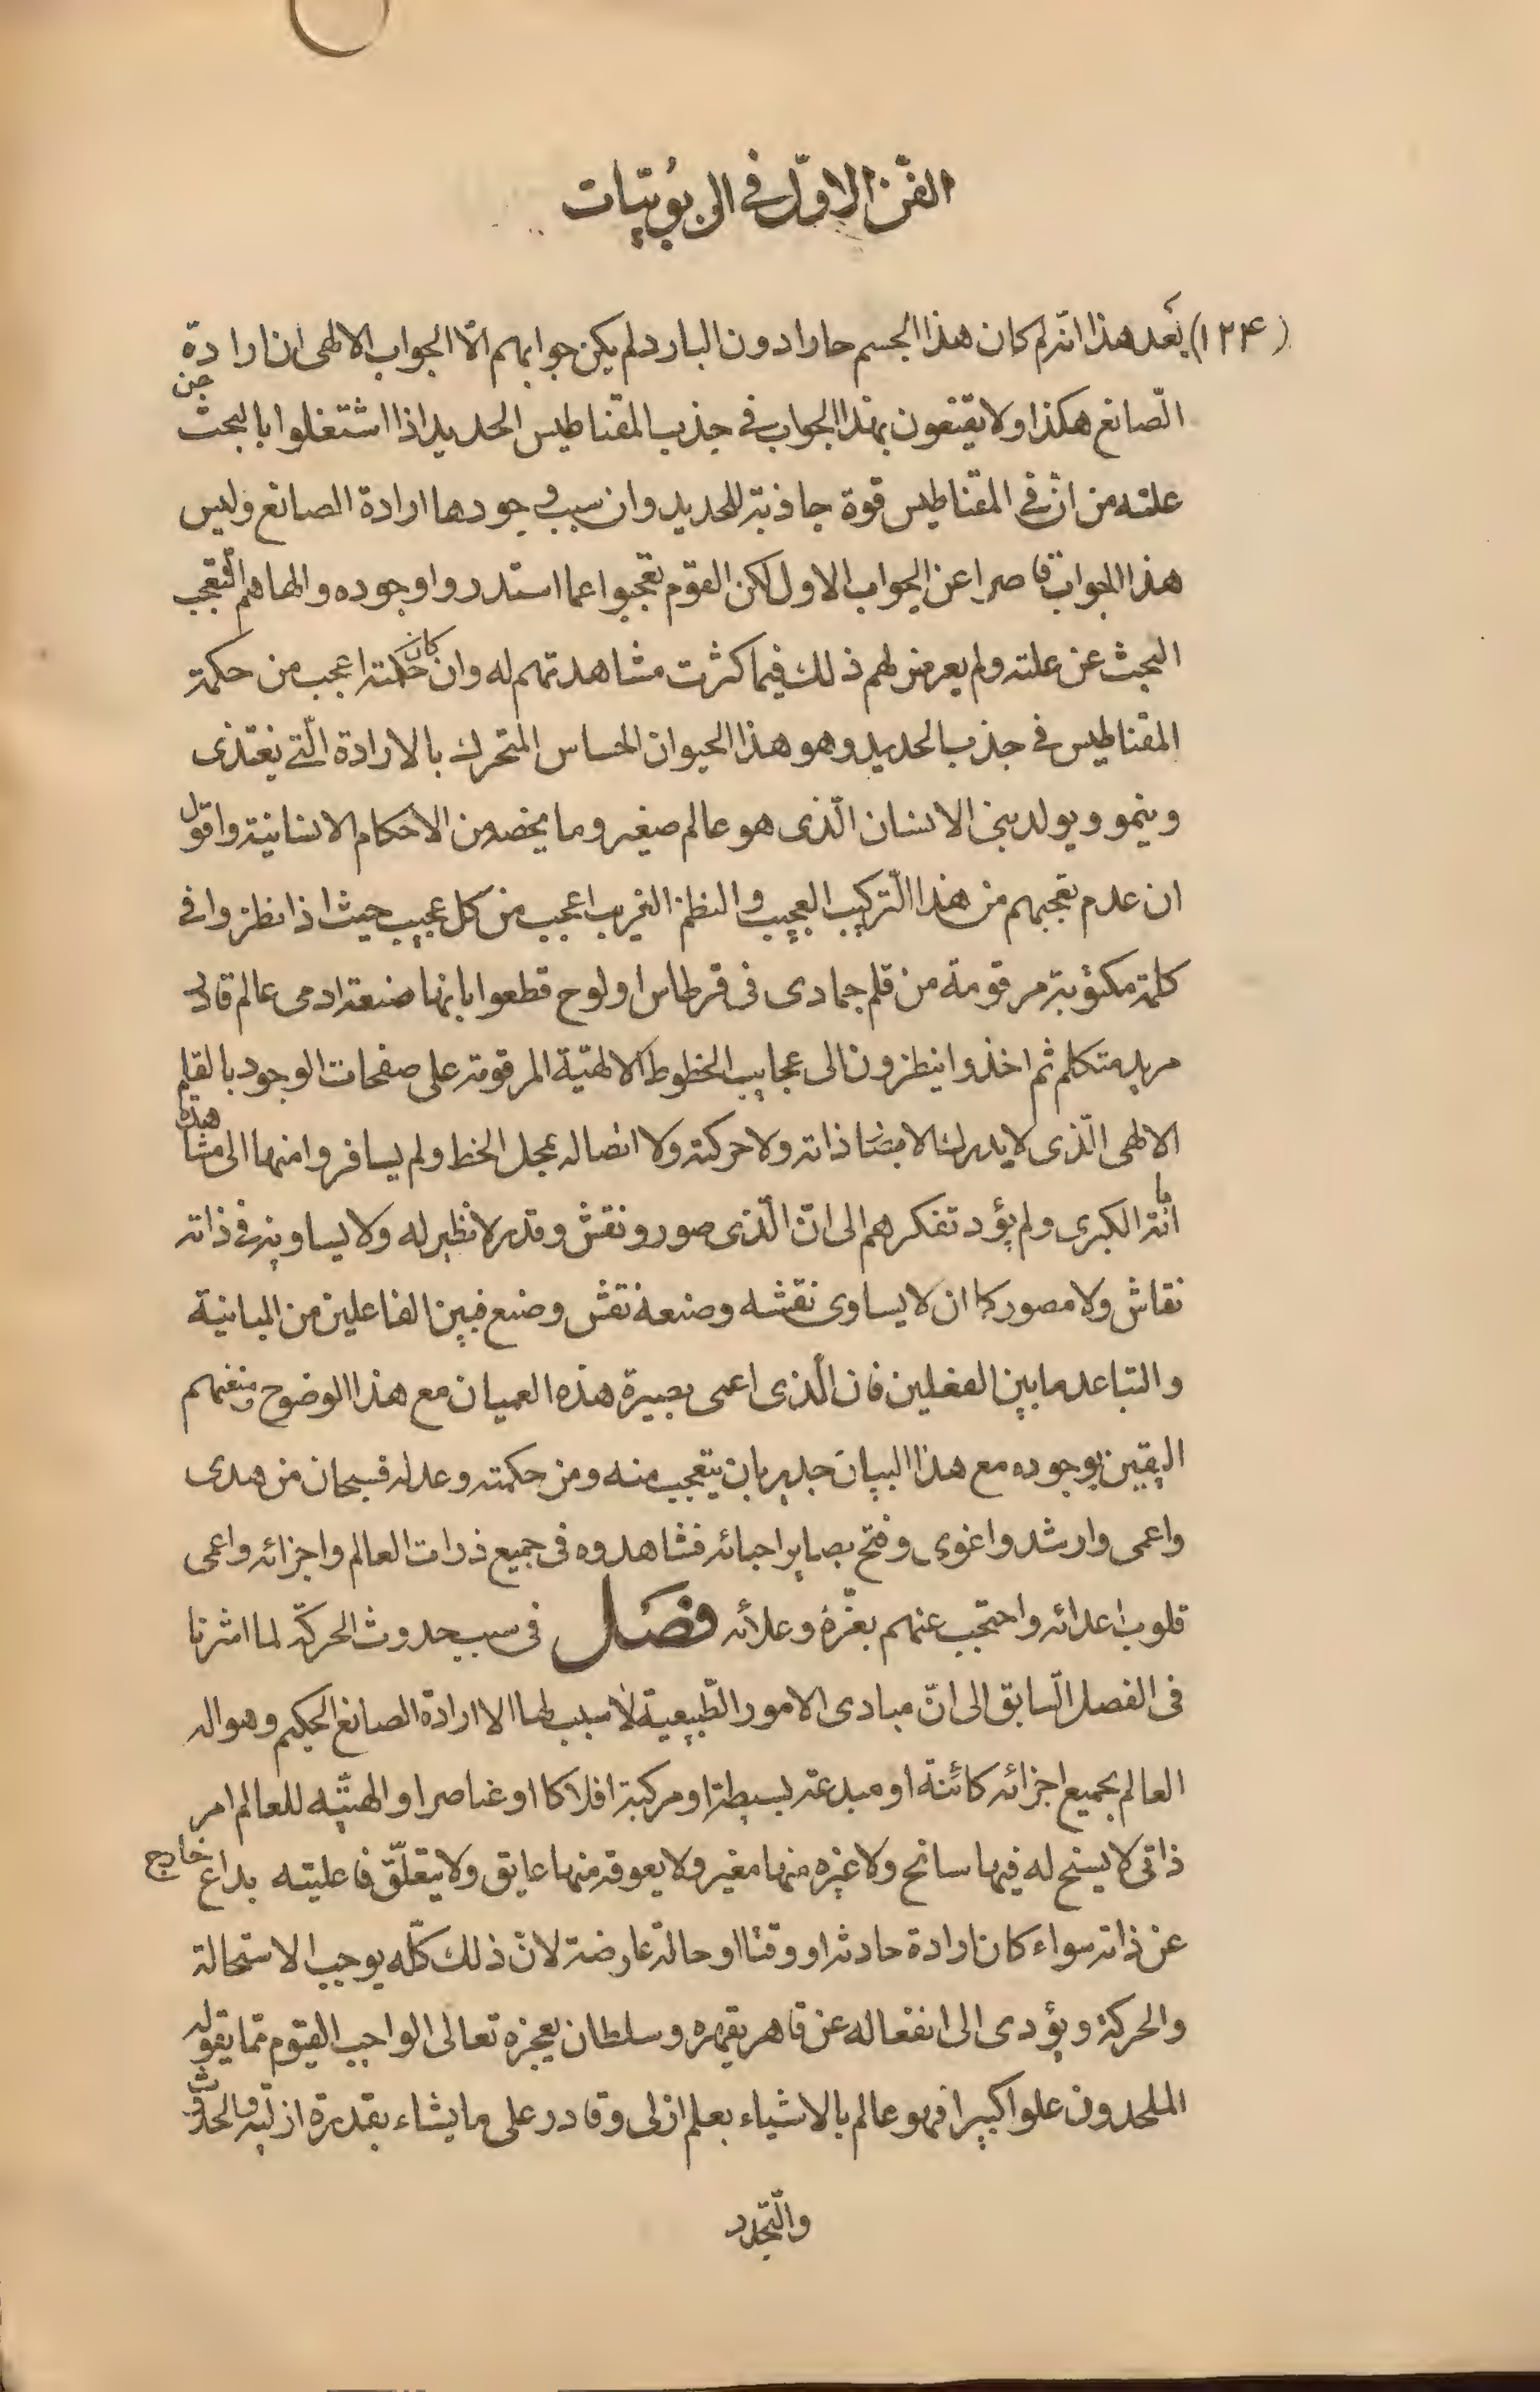 الفنّ الاوّل في الربوبيّات
(١٢۴) بعد هذا انّه لم كان هذا الجسم حارا دون البارد لم يكن جوابهم الّا الجواب الالهى ان ارادة
الصّانع هكذا ولا يقنعون بهذا الجواب في جذب المقناطيس الحديد اذا اشتغلوا بالبحث عن
علته من انّ في المقناطيس قوة جاذبة للحديد وان سبب وجودها ارادة الصانع وليس
هذا الجواب قاصرا عن الجواب الاول لكن القوم تعجبوا عما استدروا وجوده والهاهم التعجب
البحث عن علته ولم يعرض لهم ذلك فيما كثرت مشاهدتهم له وان كان حكمته اعجب من حكمة
المقناطيس في جذب الحديد وهو هذا الحيوان الحساس المتحرك بالارادة الّتي يغتذى
وينمو ويولد بنى الانسان الّذى هو عالم صغير وما يخصه من الاحكام الانسانية واقول
ان عدم تعجبهم من هذا التّركيب العجيب والنظم الغريب اعجب من كل عجيب حيث اذا نظروا في
كلمة مكتوبة مرقومة من قلم جمادى في قرطاس او لوح قطعوا بانها صنعة ادمى عالم قادر
مريد متكلم ثم اخذوا ينظرون الى عجايب الخطوط الالهيّة المرقومة على صفحات الوجود بالقلم
الالهى الّذى لا يدرك الابصار ذاته ولا حركته ولا اتصاله بمحل الخط ولم يسافروا منها الى مشاهدة
اياته الكبرى ولم يؤد تفكرهم الى انّ الّذى صور ونقش وقدر لا نظير له ولا يساويه في ذاته
نقاش ولا مصور كما ان لا يساوى نقشه وصنعه نقش وصنع فبين الفاعلين من المباينة
والتباعد ما بين الفعلين فان الّذى اعمى بصيرة هذه العميان مع هذا الوضوح ومنعهم
اليقين بوجوده مع هذا البيان جدير بان يتعجب منه ومن حكمته وعدله فسبحان من هدى
واعمى وارشد واغوى وفتح بصاير احبائه فشاهدوه في جميع ذرات العالم واجزائه واعمى
قلوب اعدائه واحتجب عنهم بعزّة وعلائه فصل في سبب حدوث الحركة لما اشرنا
في الفصل السّابق الى انّ مبادى الامور الطّبيعية لا سبب لها الا ارادة الصانع الحكيم وهو اله
العالم بجميع اجزائه كائنة او مبدعة بسيطة او مركبة افلاكا او عناصر او الهيّته للعالم امر
ذاتى لا يسنح له فيها سانح ولا غيره منها مغير ولا يعوقه منها عايق ولا يتعلّق فاعليته بداع خارج
عن ذاته سواء كان ارادة حادثة او وقتا او حالة عارضة لانّ ذلك كلّه يوجب الاستحالة
والحركة ويؤدى الى انفعاله عن قاهر يقهره وسلطان يعجزه تعالى الواجب القيوم عما يقوله
الملحدون علوا كبيرا فهو عالم بالاشياء بعلم ازلى وقادر على ما يشاء بقدرة ازليّة والحدوث
والتّجدد